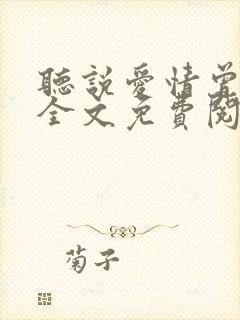 聽説愛情曾
全文免費閱
菊子